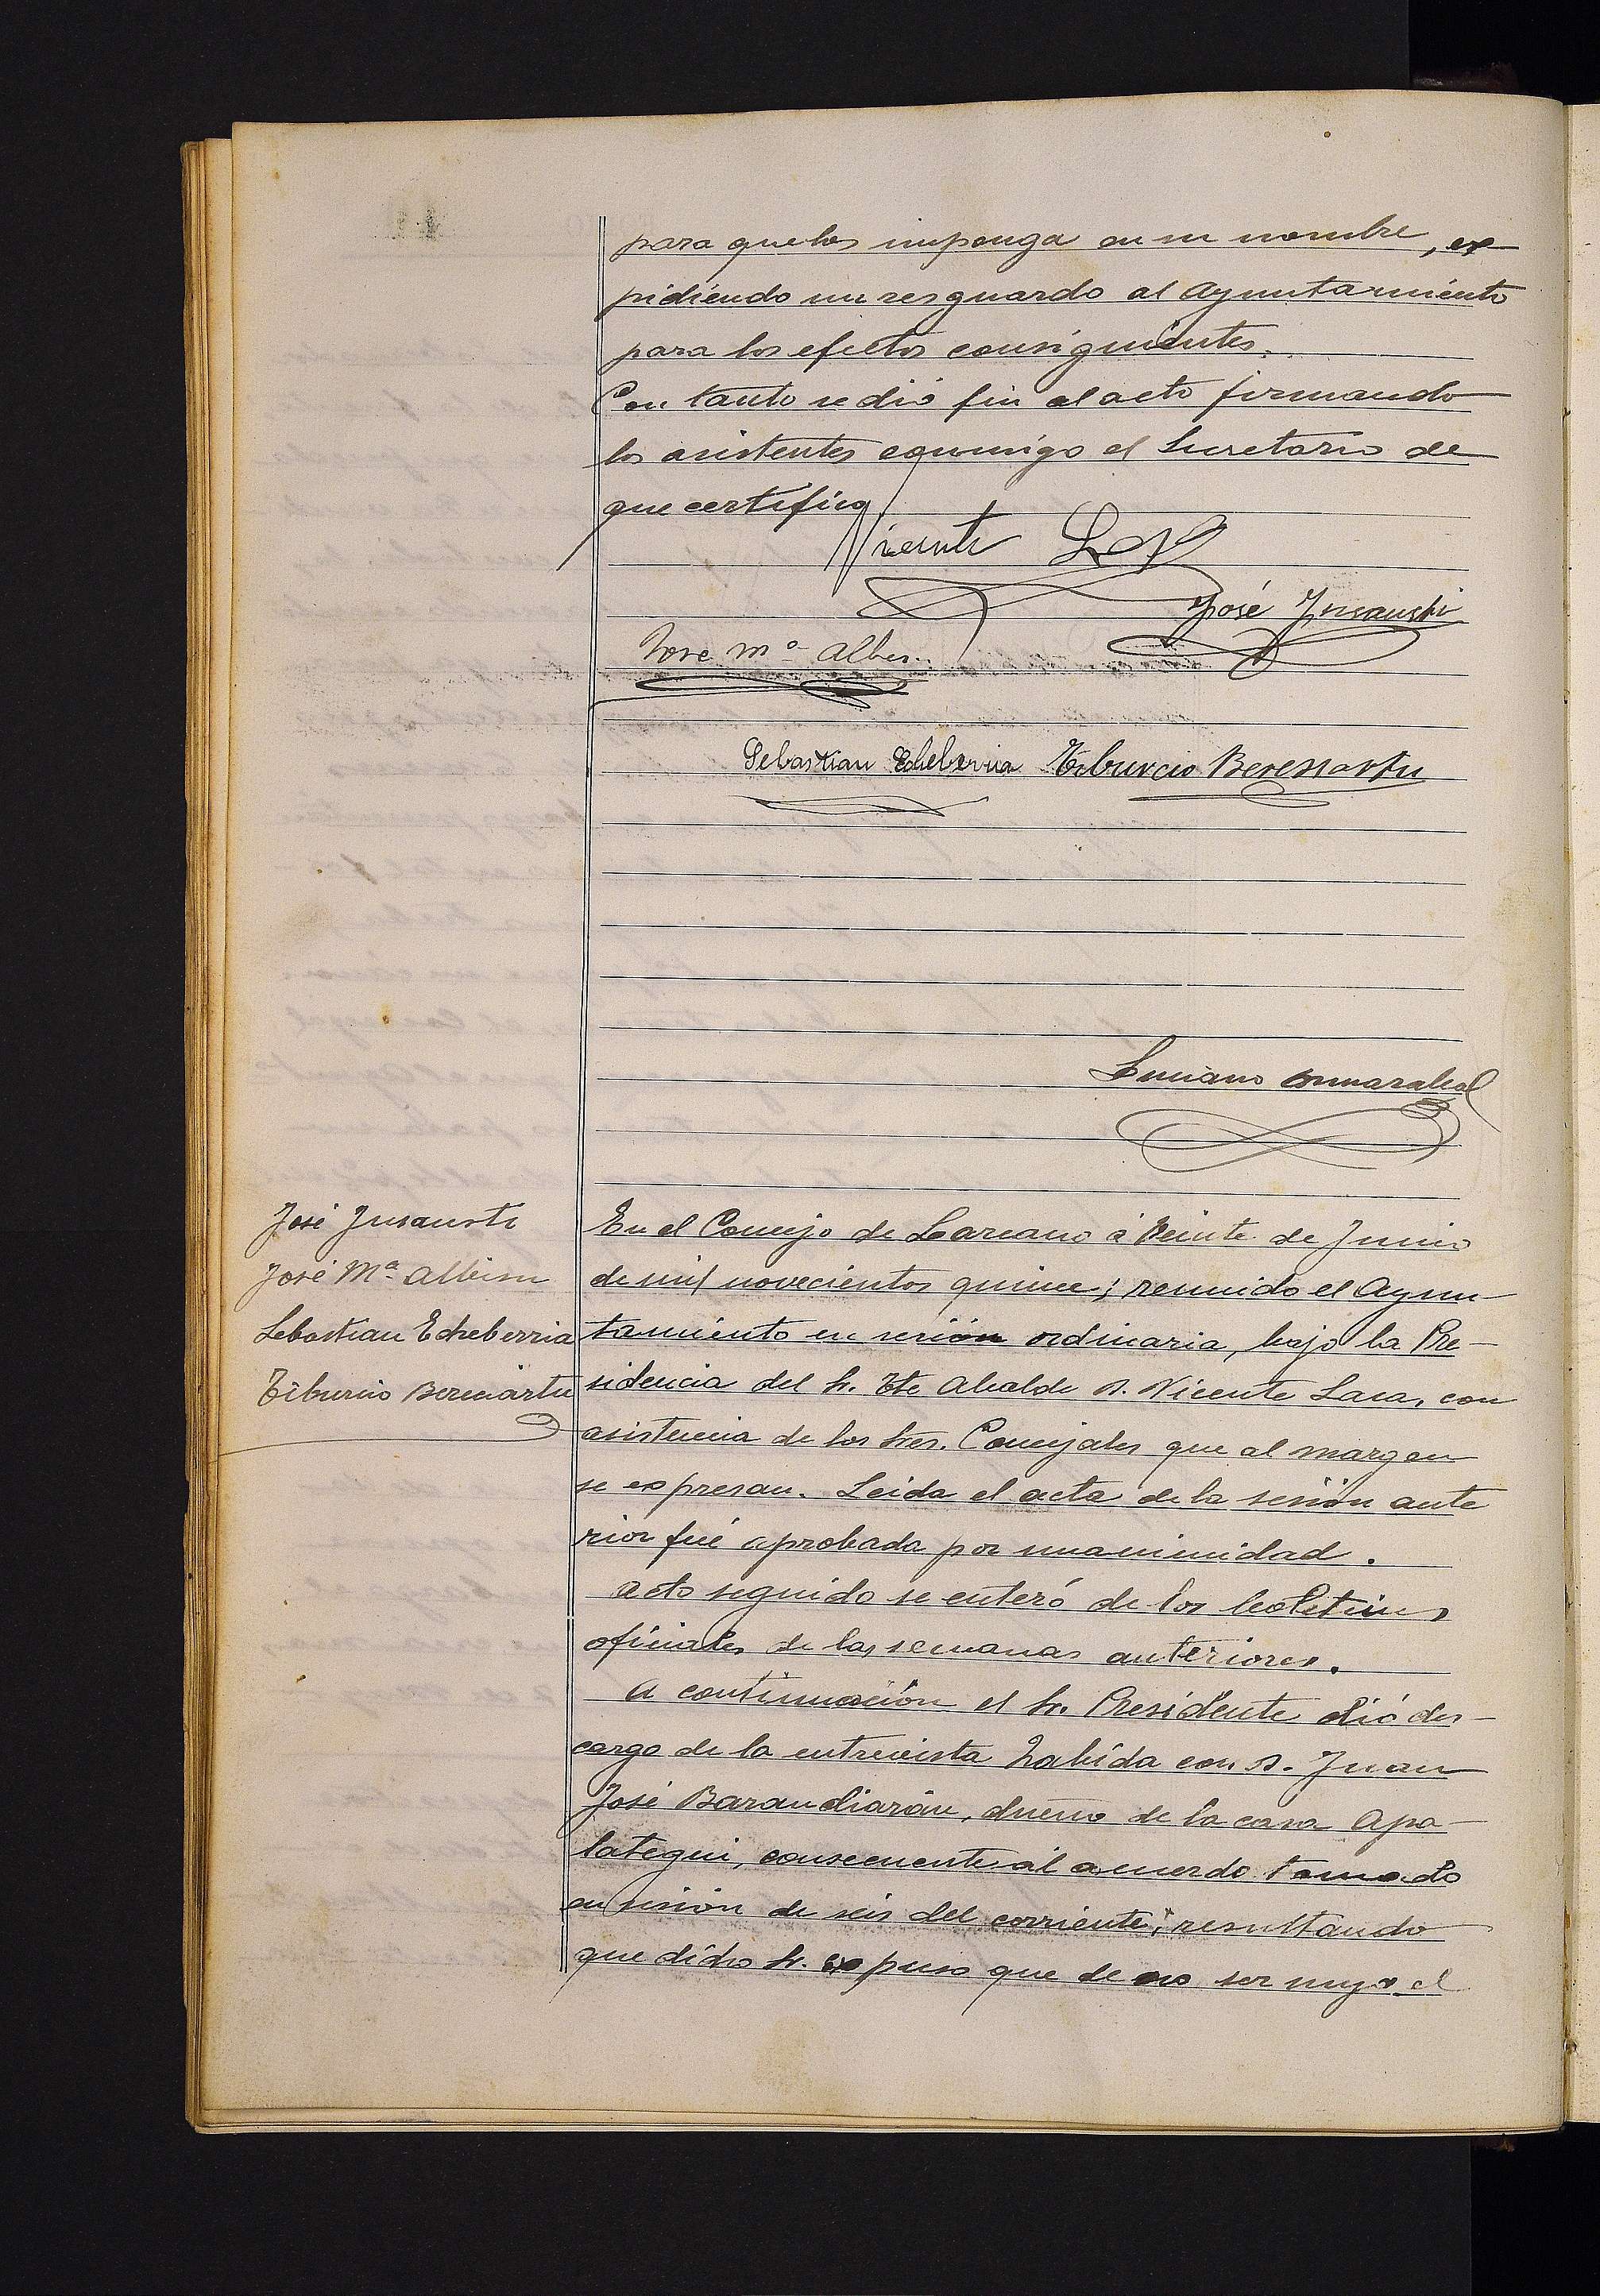 para que los imponga en su nombre, ex-
pidiendo un resguardo al Ayuntamiento
para los efectos consiguientes.
Con tanto se dió fin al acto firmando
los asistentes conmigo el Secretario de
que certifico
Vicente
José Insausti
Jose Mª Albisu
Sebastian Echeberria Tiburcio Berezartu
Luciano
José Insausti
José Mª Albisu
Sebastian Echeberria
Tiburcio Bereciartu
En el Concejo de Lazcano á veinte de Junio
de mil novecientos quince; reunido el Ayun-
tamiento en sesión ordinaria, bajo la Pre-
sidencia del Sr. Tte Alcalde D. Vicente Lasa, con
asistencia de los Sres. Concejales que al margen
se expresan. Leida el acta de la sesión ante
rior fué aprobada por unanimidad.
Acto seguido se enteró de los boletines
oficiales de las semanas anteriores.
A continuación el Sr. Presidente dió des-
cargo de la entrevista habida con D. Juan
José Barandiarán, dueño de la casa Apa-
lategui, consecuente al acuerdo tomado
en sesión de seis del corriente; resultando
que dicho Sr. expuso que de no ser suyo el